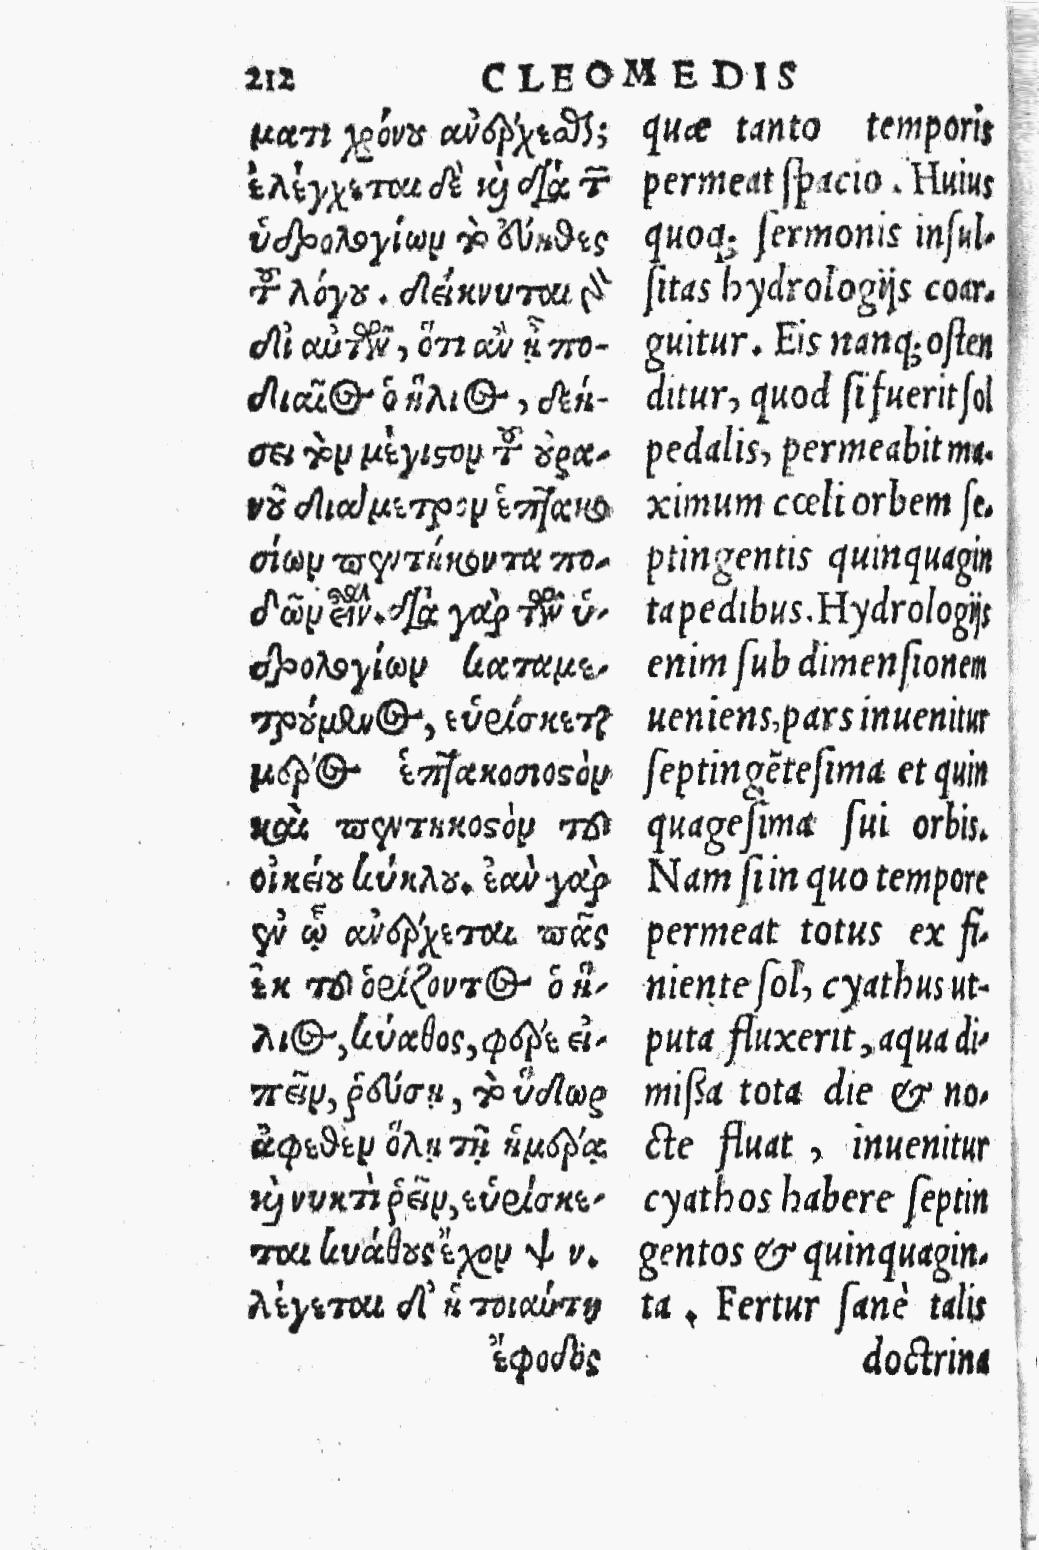 212 CLEOMEDIS
ματι χρόνου ἀνέρχεσθαι;
ἐλέγχεται δὲ καὶ διὰ τῶν
ὑδρολογίων τὸ εὔηθες
τοῦ λόγου. δείκνυται γὰρ
δι αὐτῶν, ὅτι ἂν ᾖ πο-
διαῖος ὁ ἥλιος, δεή-
σει τὸν μέγιστον τοῦ οὐρα-
νοῦ διάμετρον ἑπτακο
σίων πεντήκοντα πο-
δῶν εἶναι. διὰ γὰρ τῶν ὑ-
δρολογίων καταμε-
τρούμενος, εὑρίσκεται
μέρος ἑπτακοσιοστὸν
καὶ πεντηκοστὸν τοῦ
οἰκείου κύκλου. ἐὰν γὰρ
ἐν ᾧ ἀνέρχεται πᾶς
ἐκ τοῦ ὁρίζοντος ὁ ἥ-
λιος, κύαθος, φέρε εἰ-
πεῖν, ῥεύσῃ, τὸ ὕδωρ
ἀφεθὲν ὅλῃ τῇ ἡμέρᾳ
καὶ νυκτὶ ῥεῖν, εὑρίσκε-
ται κυάθους ἔχον ψ ν.
λέγεται δ' ἡ τοιαύτη
ἔφοδος
quæ tanto temporis
permeat spacio. Huius
quoq; sermonis insul-
sitas hydrologijs coar-
guitur. Eis nanq; osten
ditur, quod si fuerit sol
pedalis, permeabit ma-
ximum cœli orbem se-
ptingentis quinquagin
ta pedibus. Hydrologijs
enim sub dimensionem
ueniens, pars inuenitur
septingẽtesima et quin
quagesima sui orbis.
Nam si in quo tempore
permeat totus ex fi-
niente sol, cyathus ut-
puta fluxerit, aqua di-
missa tota die & no-
cte fluat, inuenitur
cyathos habere septin
gentos & quinquagin-
ta. Fertur sanè talis
doctrina